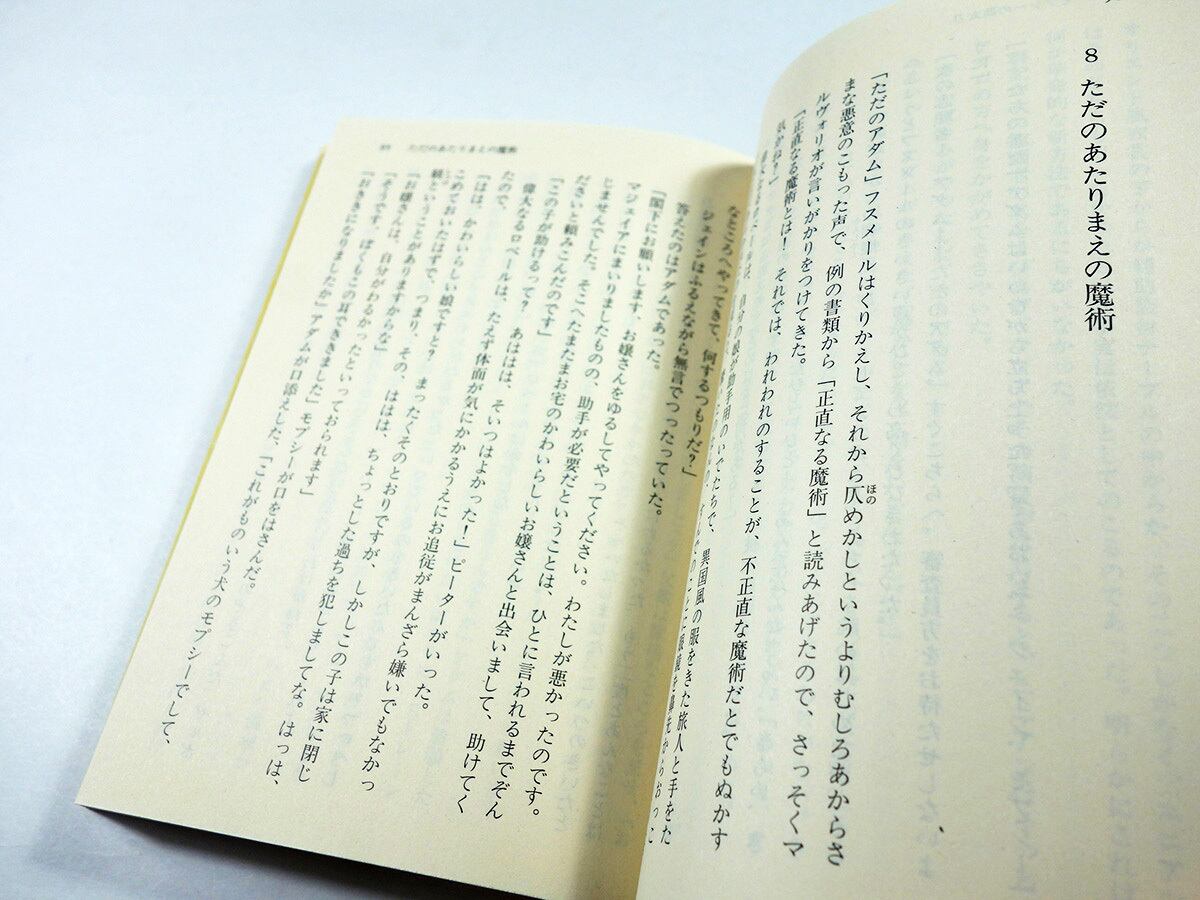 8 ただのあたりまえの魔術
「ただのアダム」フスメールはくりかえし、それから仄めかしというよりむしろあからさ
ほの
まな悪意のこもった声で、例の書類から「正直なる魔術」と読みあげたので、さっそくマ
ルヴォリオが言いがかりをつけてきた。
「正直なる魔術とは! それでは、われわれのすることが、不正直な魔術だとでもぬかす
気かね?」
自分の娘が助手用のいでたちで、異国風の服をきた旅人と手をた
ただのあたりまえの魔術
なところへやってきて、何するつもりだ?」
ジェインはふるえながら無言でつったっていた。
答えたのはアダムであった。
「閣下にお願いします、お嬢さんをゆるしてやってください。わたしが悪かったのです。
マジェイアにまいりましたものの、助手が必要だということは、ひとに言われるまでぞん
じませんでした。そこへたまたまお宅のかわいらしいお嬢さんと出会いまして、助けてく
ださいと頼みこんだのです」
「この子が助けるって? あははは、そいつはよかった!」ピーターがいった。
偉大なるロベールは、たえず体面が気にかかるうえにお追従がまんざら嫌いでもなかっ
たので、
「はは、かわいらしい娘ですと? まったくそのとおりですが、しかしこの子は家に閉じ
こめておいたはずで、つまり、その、ははは、ちょっとした過ちを犯しましてな。はっは、
娘ということがありますからな」
「お嬢さんは、自分がわるかったといっておられます」
「そうです、ぼくもこの耳でききました」モプシーが口をはさんだ。
「おききになりましたか」アダムが口添えした、「これがものいう犬のモプシーでして、